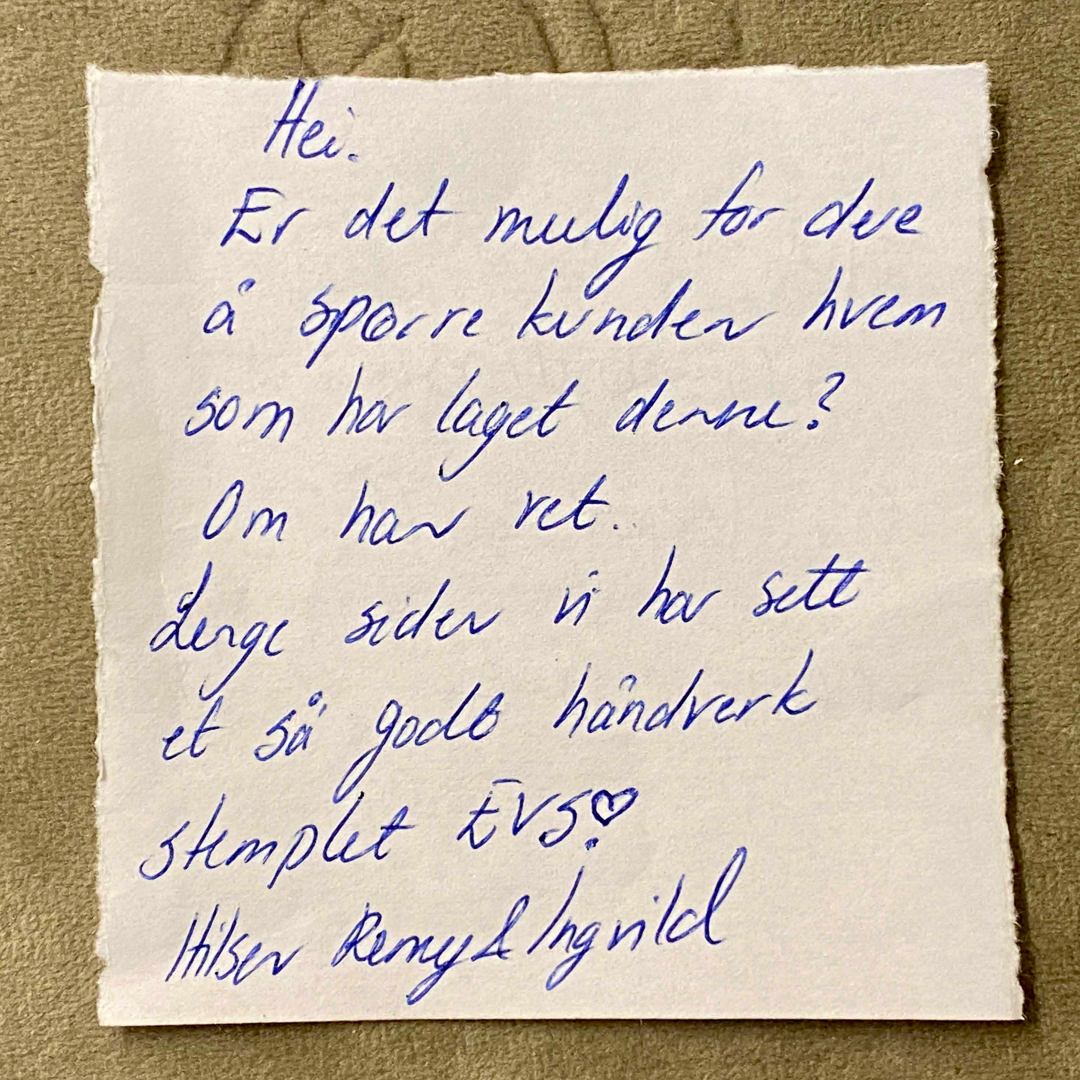 Hei.
Er det mulig for dere
å spørre kunden hvem
som har laget denne?
Om han vet.
Lenge siden vi har sett
et så godt håndverk
stemplet EVS♡
Hilsen Remy & Ingvild